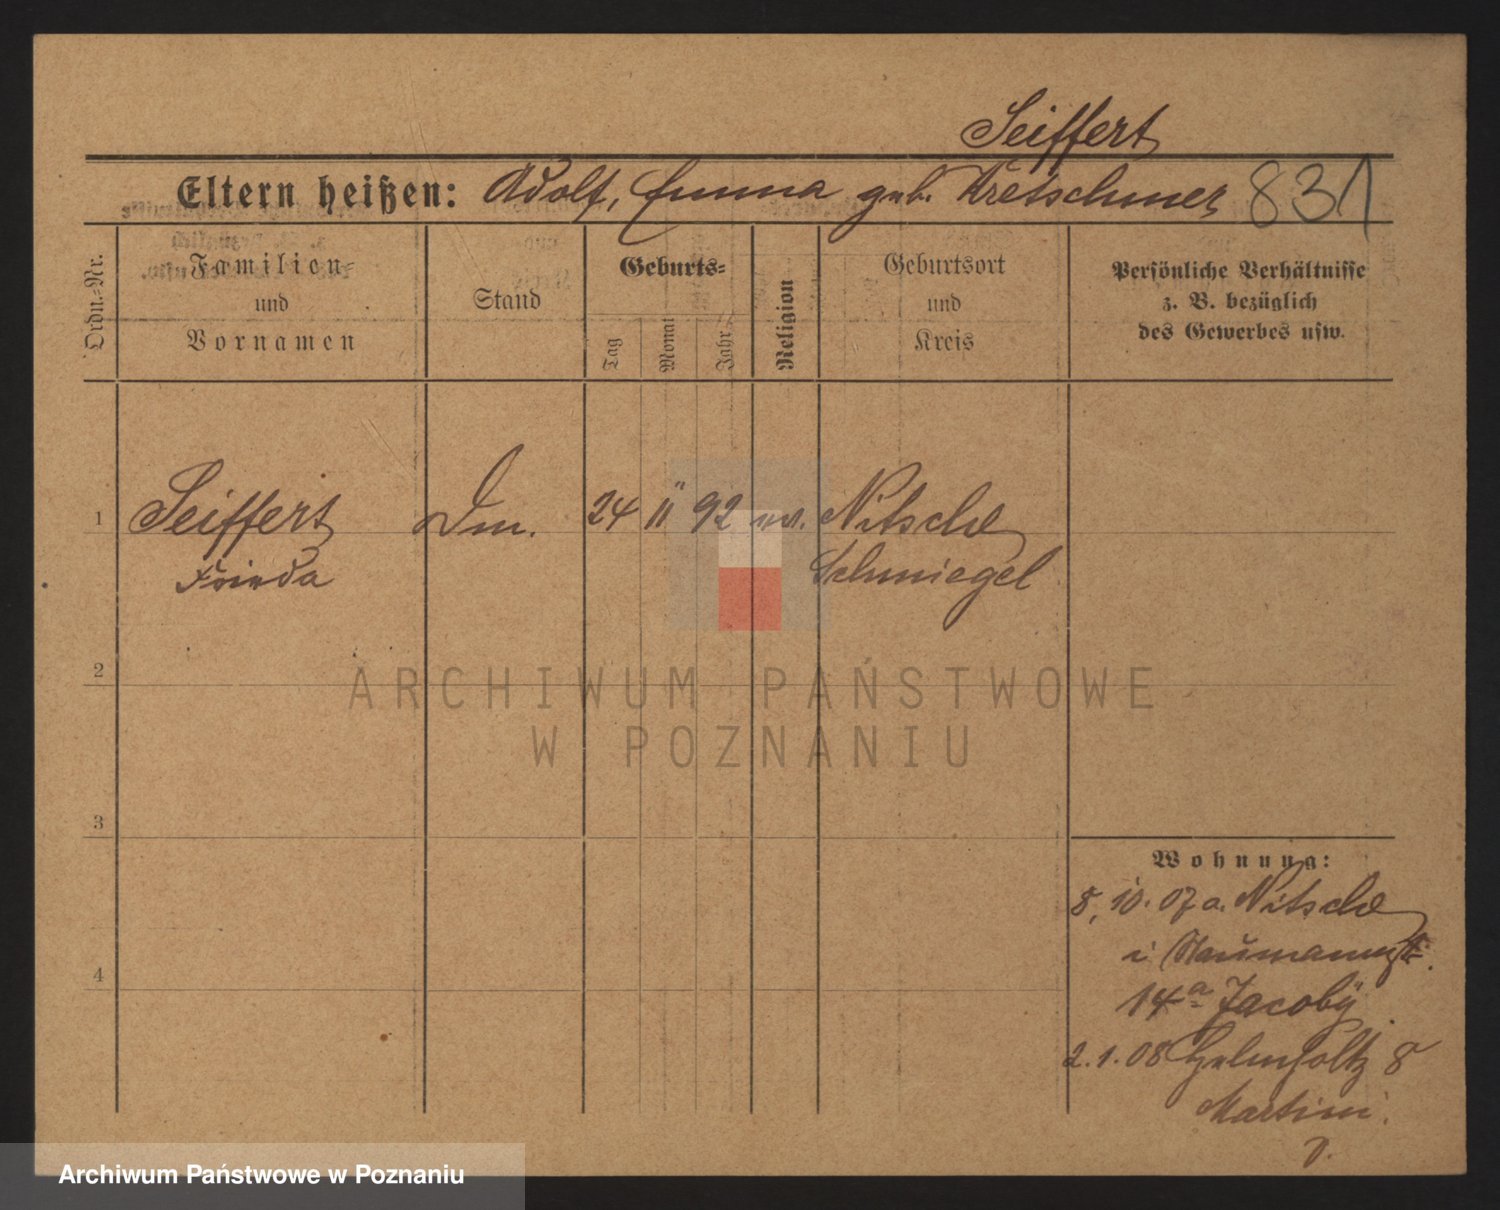 Seiffert
Eltern heißen: Adolf, Emma geb. Kretschmer 831
Ordn.-Nr.
Familien-
und
Vornamen
Stand
Geburts-
Tag
Monat
Jahr
Religion
Geburtsort
und
Kreis
Persönliche Verhältnisse
z. B. bezüglich
des Gewerbes usw.
1 Seiffert Dm. 24 11 92 ev. Nitsche
Frieda Schmiegel
2
ARCHIWUM PAŃSTWOWE
W POZNANIU
3
Wohnung:
8. 10. 07 a. Nitsche
i Naumannstr.
4
14a Jacoby
2. 1. 08 Helmholtz 8
Martini.
Archiwum Państwowe w Poznaniu